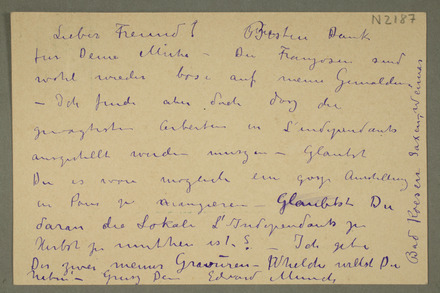 N2187
Lieber Freund! Besten Dank
für Deine Mühe – Die Franzosen sind
wohl wieder böse auf meine Gemälden
– Ich finde aber doch das die
gewagtesten Arbeiten in L'independants
ausgestellt werden mussen – Glaubst
Du es wäre moglich ein gross Ausstellung
in Paris zu arangieren – Glaubst Du
daran die Lokale L'Independants zu
Herbst zu miethen ist? – Ich gebe
Dir zwei meines Gravüren – Welche willst Du
– Gruss Dein Edvard Munch
Bad Koesen Saxen Weimar